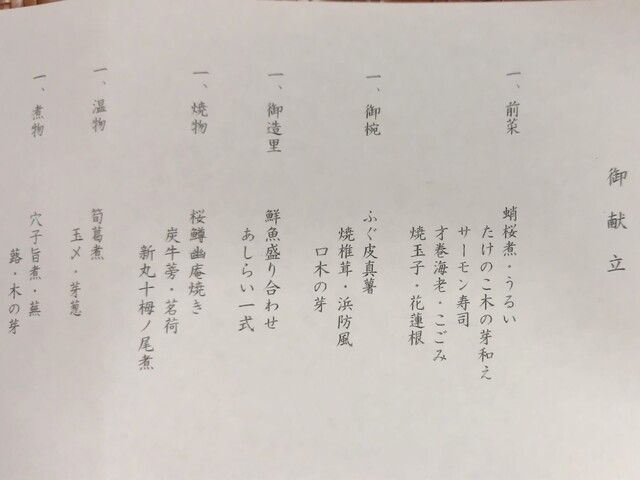 御献立
一、前菜
蛸桜煮・うるい
たけのこ木の芽和え
サーモン寿司
才巻海老・こごみ
焼玉子・花蓮根
一、御椀
ふぐ皮真薯
焼椎茸・浜防風
口木の芽
一、御造里
鮮魚盛り合わせ
あしらい一式
一、焼物
桜鱒幽庵焼き
炭牛蒡・茗荷
新丸十梅ノ尾煮
一、温物
筍葛煮
玉〆・芽葱
一、煮物
穴子旨煮・蕪
蕗・木の芽